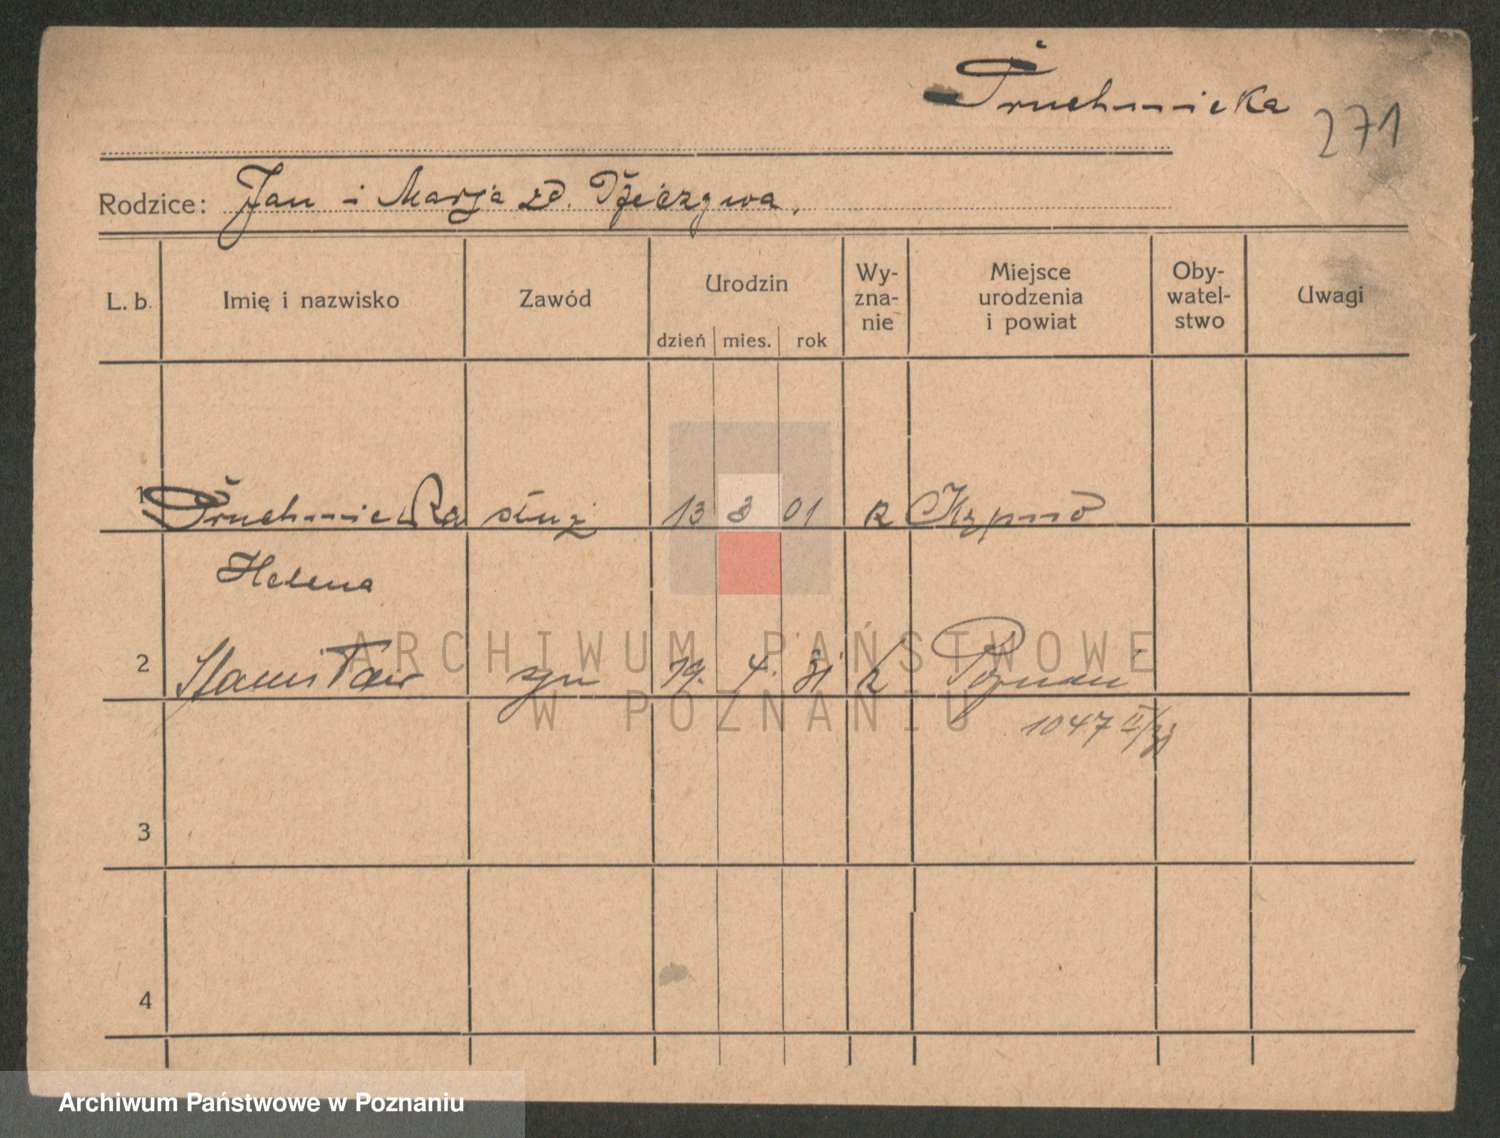 Pruchnicka
271
Rodzice: Jan i Marja zd.
L. b. Imię i nazwisko Zawód Urodzin dzień mies. rok Wy-zna-nie Miejsce urodzenia i powiat Oby-watel-stwo Uwagi
1 Pruchnicka służ 13 3 01 k
Helena
2 Stanisław syn 19. 4. 31 k Poznań
1047 II/31
3
4
ARCHIWUM PAŃSTWOWE
W POZNANIU
Archiwum Państwowe w Poznaniu